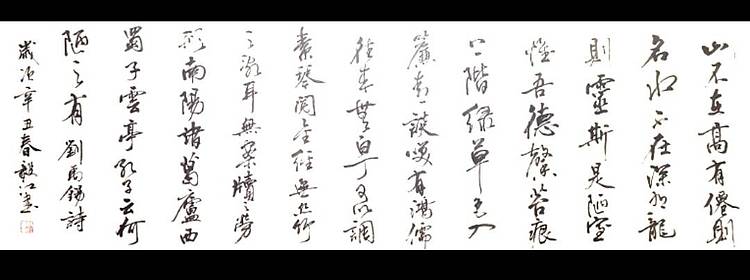 山不在高有僊則
名水不在深有龍
則靈斯是陋室
惟吾德馨苔痕
上階綠草色入
簾青談咲有鴻儒
往來無白丁可以調
素琴閱金經無絲竹
之亂耳無案牘之勞
形南陽諸葛廬西
蜀子雲亭孔子云何
陋之有 劉禹錫詩
歲次辛丑春毅江書